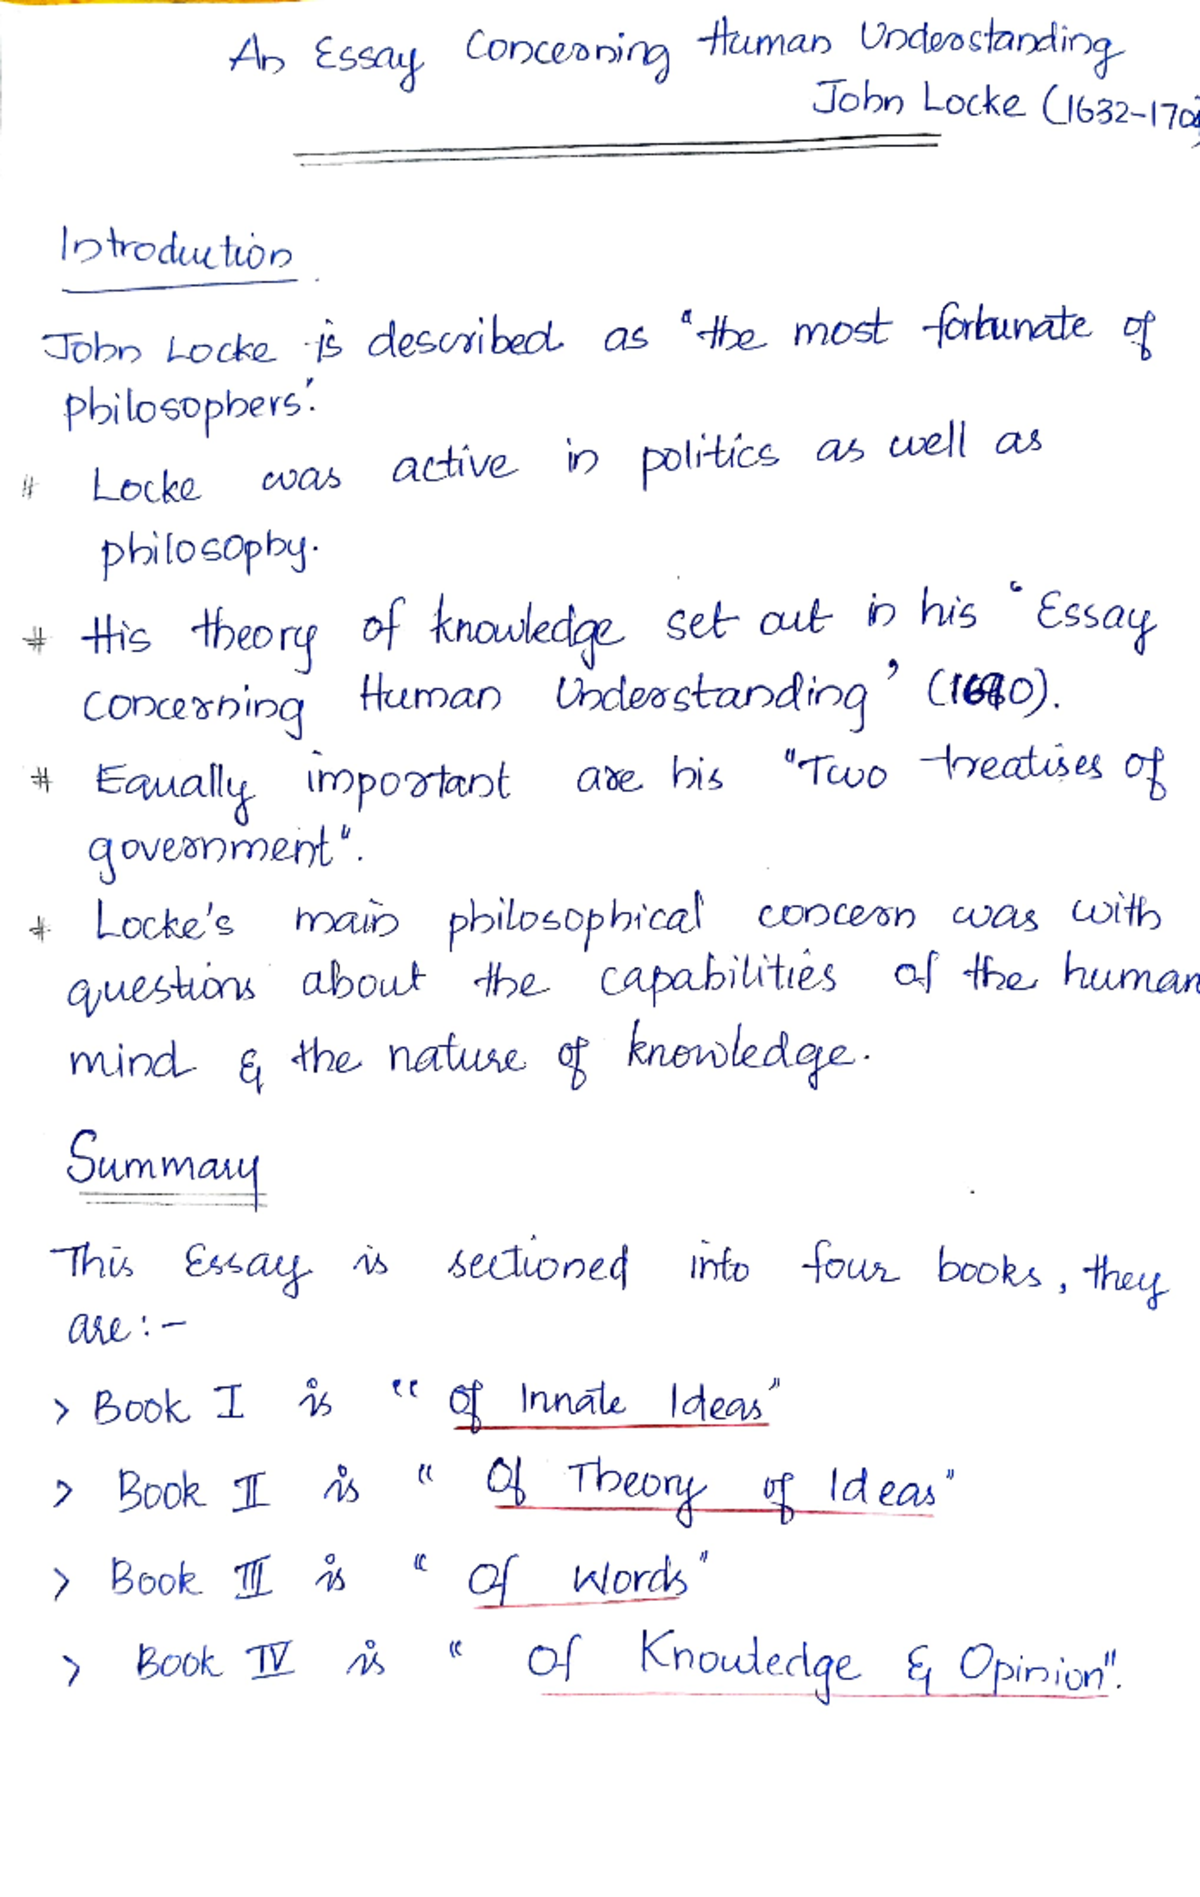 An Essay Concerning Human Understanding
John Locke (1632-170
Introduction
John Locke is described as "the most fortunate of
philosophers".
# Locke was active in politics as well as
philosophy.
# His theory of knowledge set out in his 'Essay
concerning Human Understanding' (1690).
# Equally important are his "Two treatises of
government".
# Locke's main philosophical concern was with
questions about the capabilities of the human
mind & the nature of knowledge.
Summary
This Essay is sectioned into four books, they
are:-
> Book I is "of Innate Ideas"
> Book II is "Of Theory of Ideas"
> Book III is "Of Words"
> Book IV is "Of Knowledge & Opinion".